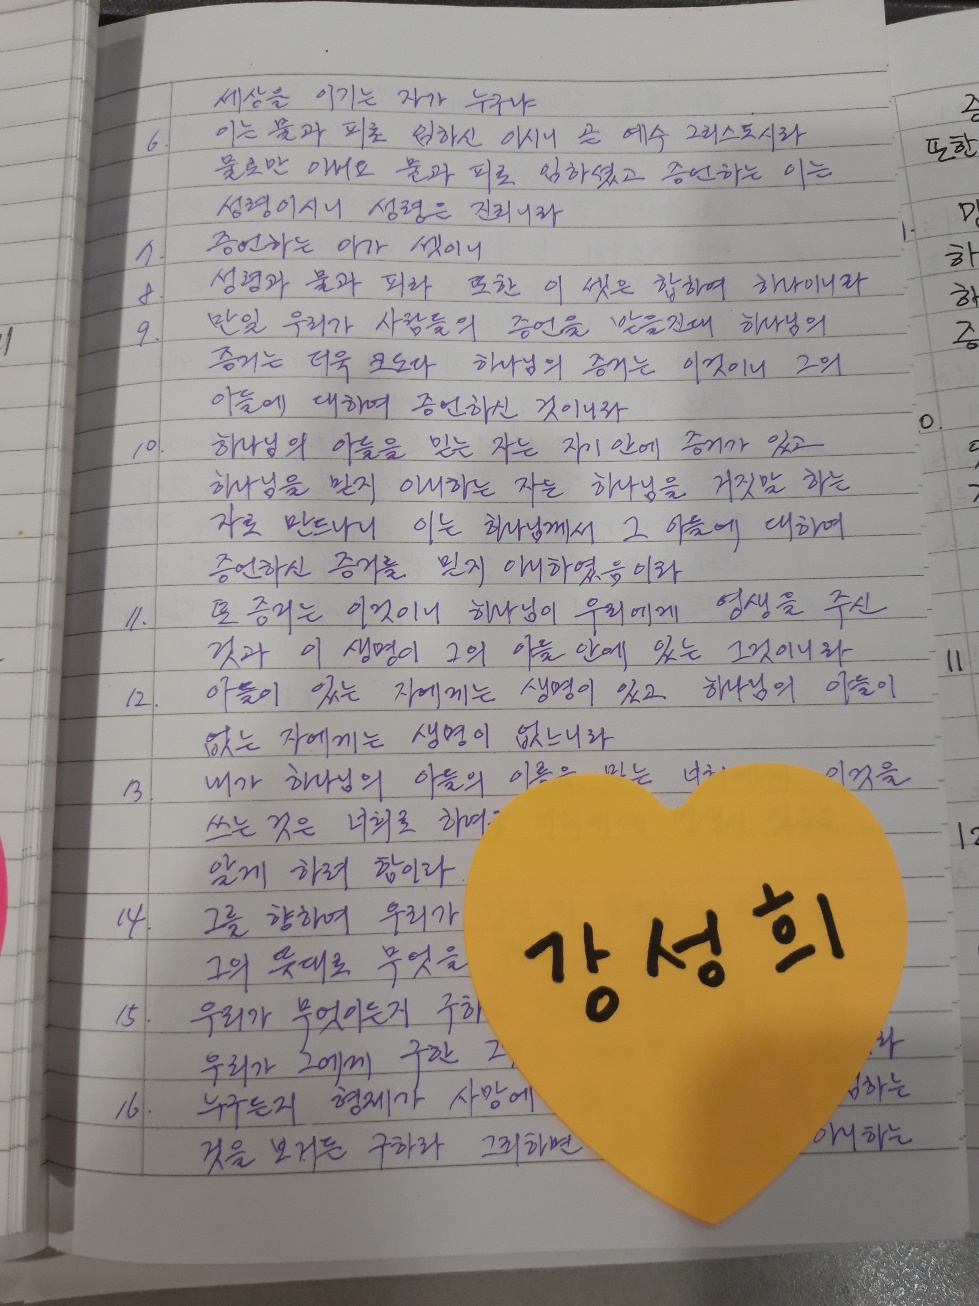 세상을 이기는 자가 누구냐
6. 이는 물과 피로 임하신 이시니 곧 예수 그리스도시라
물로만 아니요 물과 피로 임하셨고 증언하는 이는
성령이시니 성령은 진리니라
7. 증언하는 이가 셋이니
8. 성령과 물과 피라 또한 이 셋은 합하여 하나이니라
9. 만일 우리가 사람들의 증언을 받을진대 하나님의
증거는 더욱 크도다 하나님의 증거는 이것이니 그의
아들에 대하여 증언하신 것이니라
10. 하나님의 아들을 믿는 자는 자기 안에 증거가 있고
하나님을 믿지 아니하는 자는 하나님을 거짓말 하는
자로 만드나니 이는 하나님께서 그 아들에 대하여
증언하신 증거를 믿지 아니하였음이라
11. 또 증거는 이것이니 하나님이 우리에게 영생을 주신
것과 이 생명이 그의 아들 안에 있는 그것이니라
12. 아들이 있는 자에게는 생명이 있고 하나님의 아들이
없는 자에게는 생명이 없느니라
13 내가 하나님의 아들의 이름을 믿는 이것을
쓰는 것은 너희로 하여
알게 하려 함이라
14. 그를 향하여 우리가
그의 뜻대로 무엇을
15. 우리가 무엇이든지 구하
우리가 그에게 구한 라
16. 누구든지 형제가 사망에 하는
것을 보거든 구하라 그리하면 아니하는
강성희
증
또한
1.
하
하
증
0.
11
12